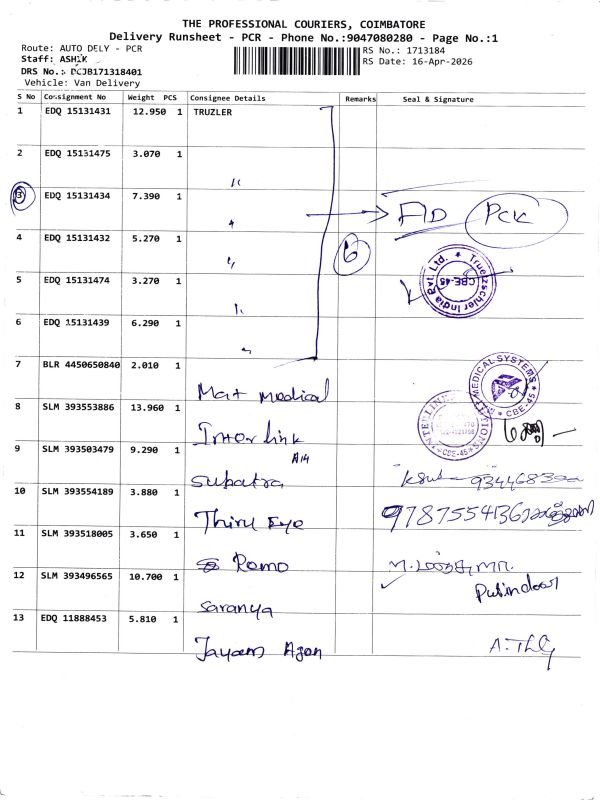 THE PROFESSIONAL COURIERS, COIMBATORE
Delivery Runsheet - PCR - Phone No.:9047080280 - Page No.:1
Route: AUTO DELY - PCR
RS No.: 1713184
Staff: ASHIK
RS Date: 16-Apr-2026
DRS No.: DCJB171318401
Vehicle: Van Delivery
S No Consignment No Weight PCS Consignee Details Remarks Seal & Signature
1 EDQ 15131431 12.950 1 TRUZLER
2 EDQ 15131475 3.070 1 "
3 EDQ 15131434 7.390 1 "
FID PCK
4 EDQ 15131432 5.270 1 "
6
Truetzschler India Pvt. Ltd. * CBE-45
5 EDQ 15131474 3.270 1 "
6 EDQ 15131439 6.290 1 "
7 BLR 4450650840 2.010 1 Mat Medical
MEDICAL SYSTEMS * CBE-45 *
8 SLM 393553886 13.960 1 Inter link
* CBE-45 *
9 SLM 393503479 9.290 1 Subatra
10 SLM 393554189 3.880 1 Thiru Eye
9787554136
11 SLM 393518005 3.650 1 Romo
12 SLM 393496565 10.700 1 Saranya
13 EDQ 11888453 5.810 1 Jayam Agen